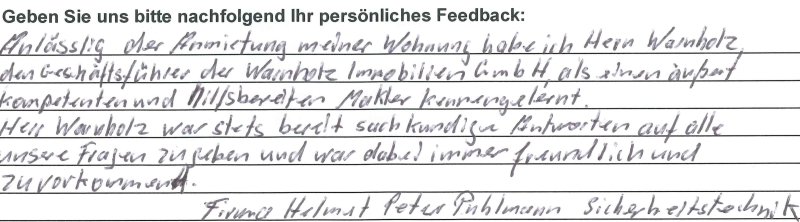 Geben Sie uns bitte nachfolgend Ihr persönliches Feedback:
Anlässlig der Anmietung meiner Wohnung habe ich Herrn Warnholz,
den Geschäftsführer der Warnholz Immobilien GmbH, als einen äußert
kompetenten und hilfsbereiten Makler kennengelernt.
Herr Warnholz war stets bereit sachkundige Antworten auf alle
unsere Fragen zu geben und war dabei immer freundlich und
zuvorkommend.
Firma Helmut Peter Puhlmann Sicherheitstechnik